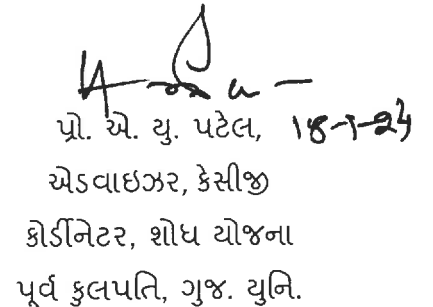 પ્રો. એ. યુ. પટેલ,
એડવાઇઝર, કેસીજી
કોર્ડીનેટર, શોધ યોજના
પૂર્વ કુલપતિ, ગુજ. યુનિ.